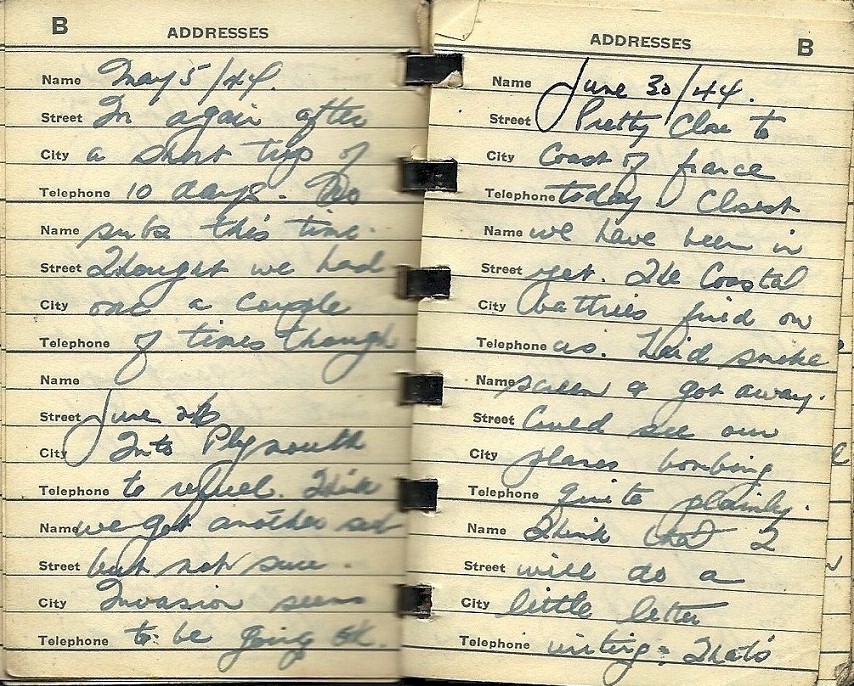 B
ADDRESSES
Name May 5/44.
Street In again after
City a short trip of
Telephone 10 days. No
Name subs this time.
Street Thought we had
City one a couple
Telephone of times though
Name
Street June 26
City Into Plymouth
Telephone to refuel. Think
Name we got another sub
Street but not sure.
City Invasion seems
Telephone to be going ok.
ADDRESSES
B
Name June 30/44.
Street Pretty Close to
City Coast of france
Telephone today. Closest
Name we have been in
Street yet. The Coastal
City battries fired on
Telephone us. Laid smoke
Name screen & got away.
Street Could see our
City planes bombing
Telephone quite plainly.
Name Think that I
Street will do a
City little letter
Telephone writing. That's